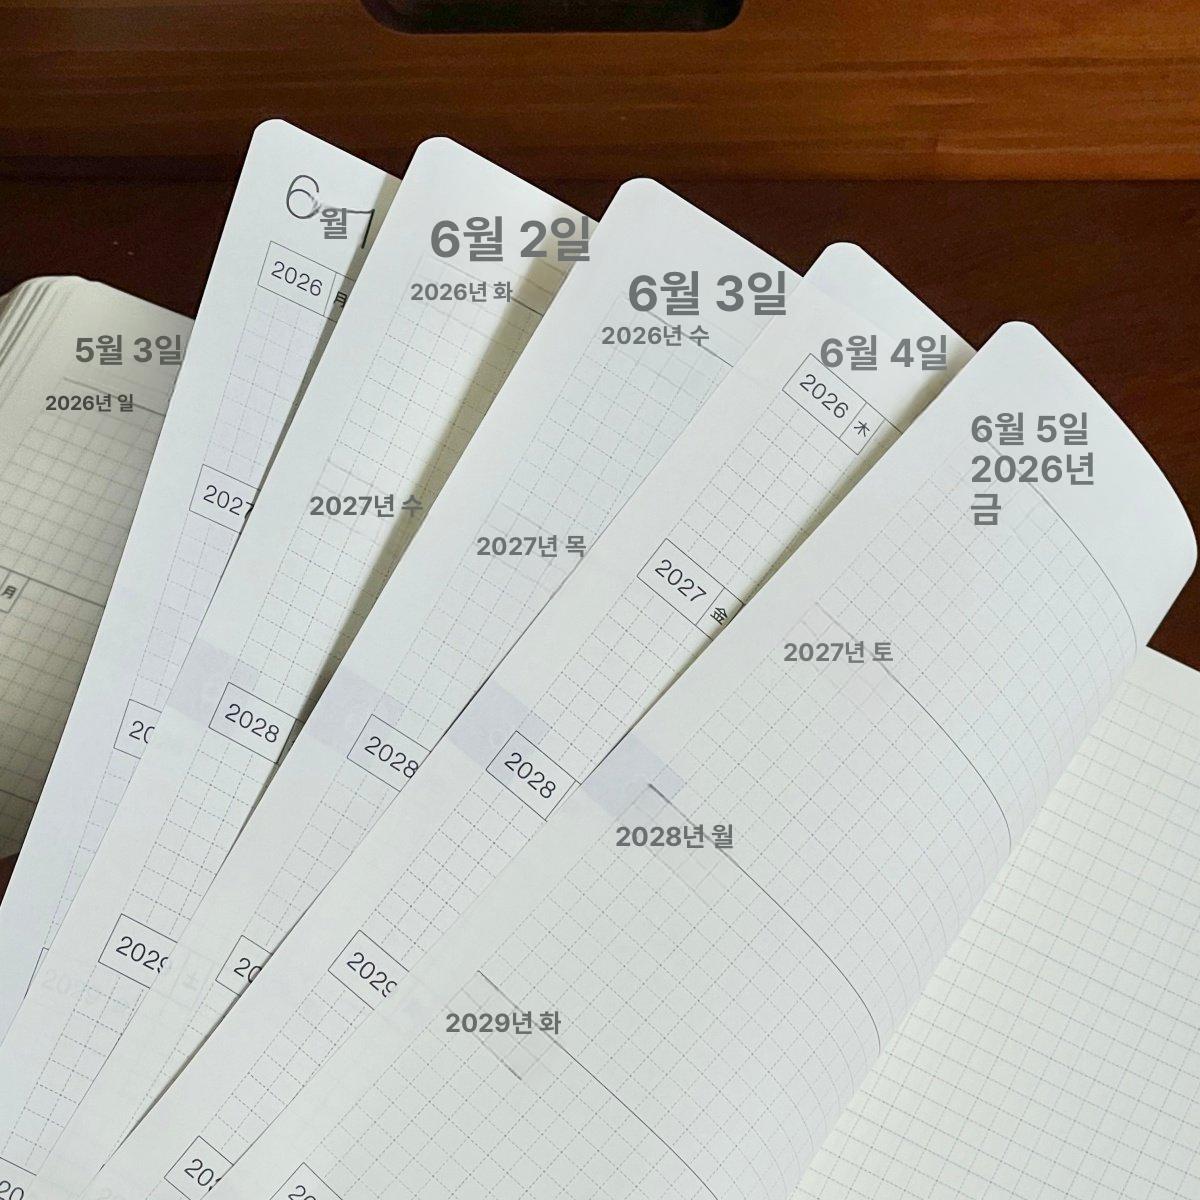 5월 3일
2026년 일
月
6월 1
2026 月
2027
20
6월 2일
2026년 화
2027년 수
2028
2029
6월 3일
2026년 수
2027년 목
2028
20
6월 4일
2026 木
2027 金
2028
2029
6월 5일
2026년
금
2027년 토
2028년 월
2029년 화
20
20
20